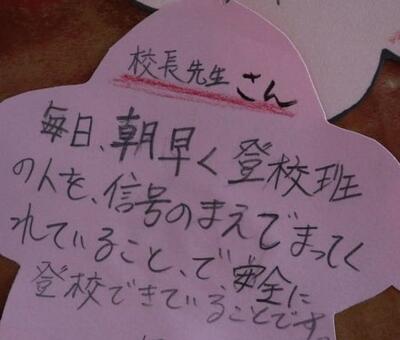 校長先生さん
毎日、朝早く登校班
の人を、信号のまえでまってく
れていること、で、安全に
登校できていることです